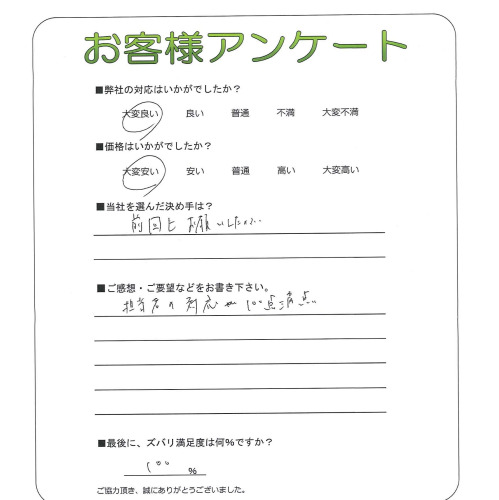 お客様アンケート
■弊社の対応はいかがでしたか？
大変良い 良い 普通 不満 大変不満
■価格はいかがでしたか？
大変安い 安い 普通 高い 大変高い
■当社を選んだ決め手は？
前回もお願いしたから
■ご感想・ご要望などをお書き下さい。
担当者の対応が100点満点
■最後に、ズバリ満足度は何%ですか？
100 %
ご協力頂き、誠にありがとうございました。